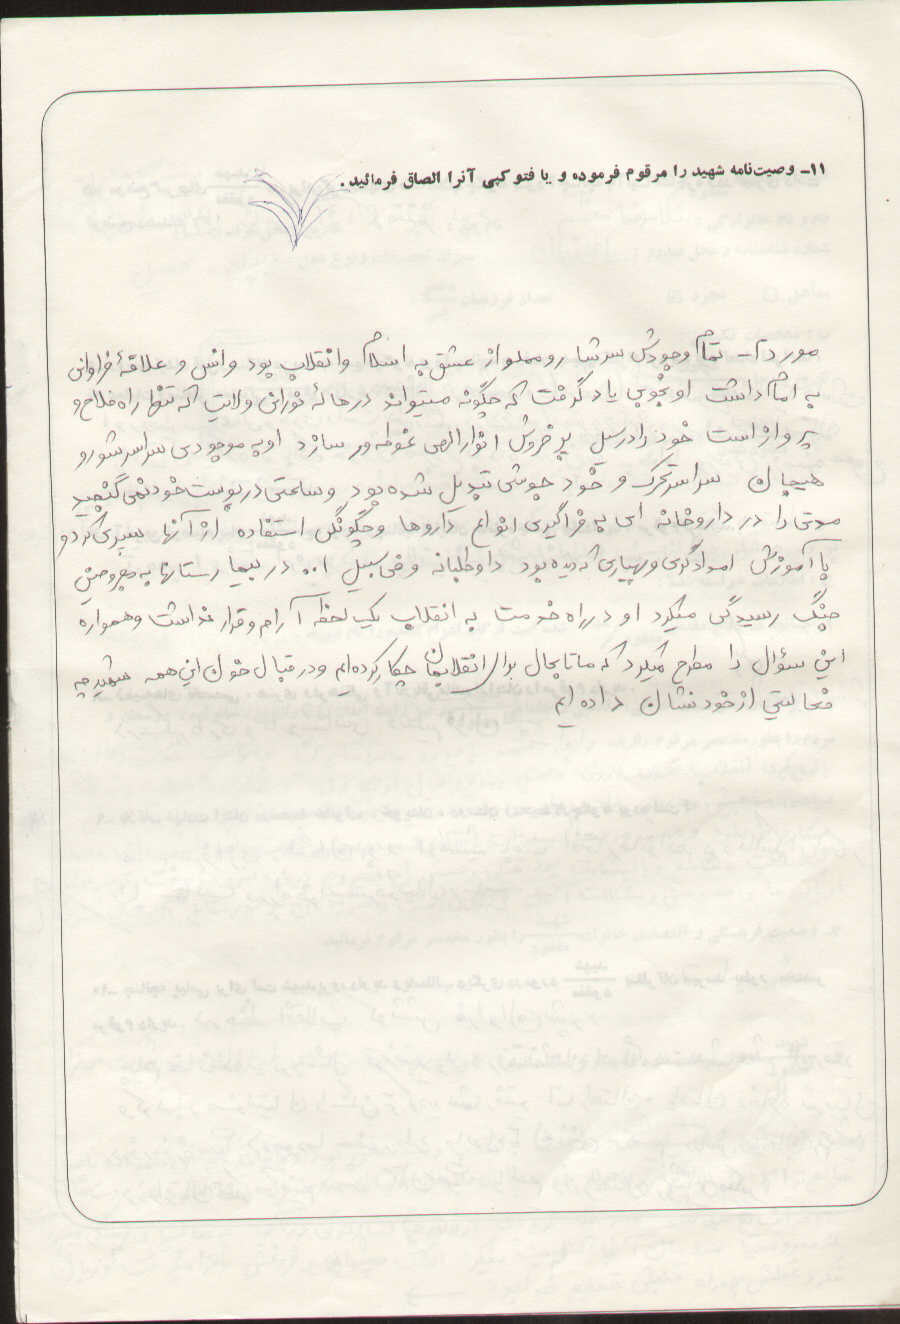 ۱۱ـ وصیت‌نامه شهید را مرقوم فرموده و یا فتوکپی آنرا الصاق فرمائید.
مورد ۲ـ تمام وجودش سرشار و مملو از عشق به اسلام و انقلاب بود و انس و علاقهٔ فراوانی
به امام داشت او بخوبی یاد گرفت که چگونه میتواند در هالهٔ نورانی ولایت که تنها راه فلاح و
پرواز است خود را در سیل پر خروش انوار الهی غوطه‌ور سازد او به موجودی سراسر شور و
هیجان سراسر تحرک و خود جوشی تبدیل شده بود و ساعتی در پوست خود نمی گنجید
مدتی را در داروخانه ای به فراگیری انواع داروها و چگونگی استفاده از آنها سپری کرد و
با آموزش امدادگری و بهیاری که دیده بود داوطلبانه و فی سبیل ا.. در بیمارستانها به مجروحین
جنگ رسیدگی میکرد او در راه خدمت به انقلاب یک لحظه آرام و قرار نداشت و همواره
این سؤال را مطرح میکرد که ما تابحال برای انقلابمان چکار کرده‌ایم و در قبال خون این همه شهید چه
از خودنشان داده ایم